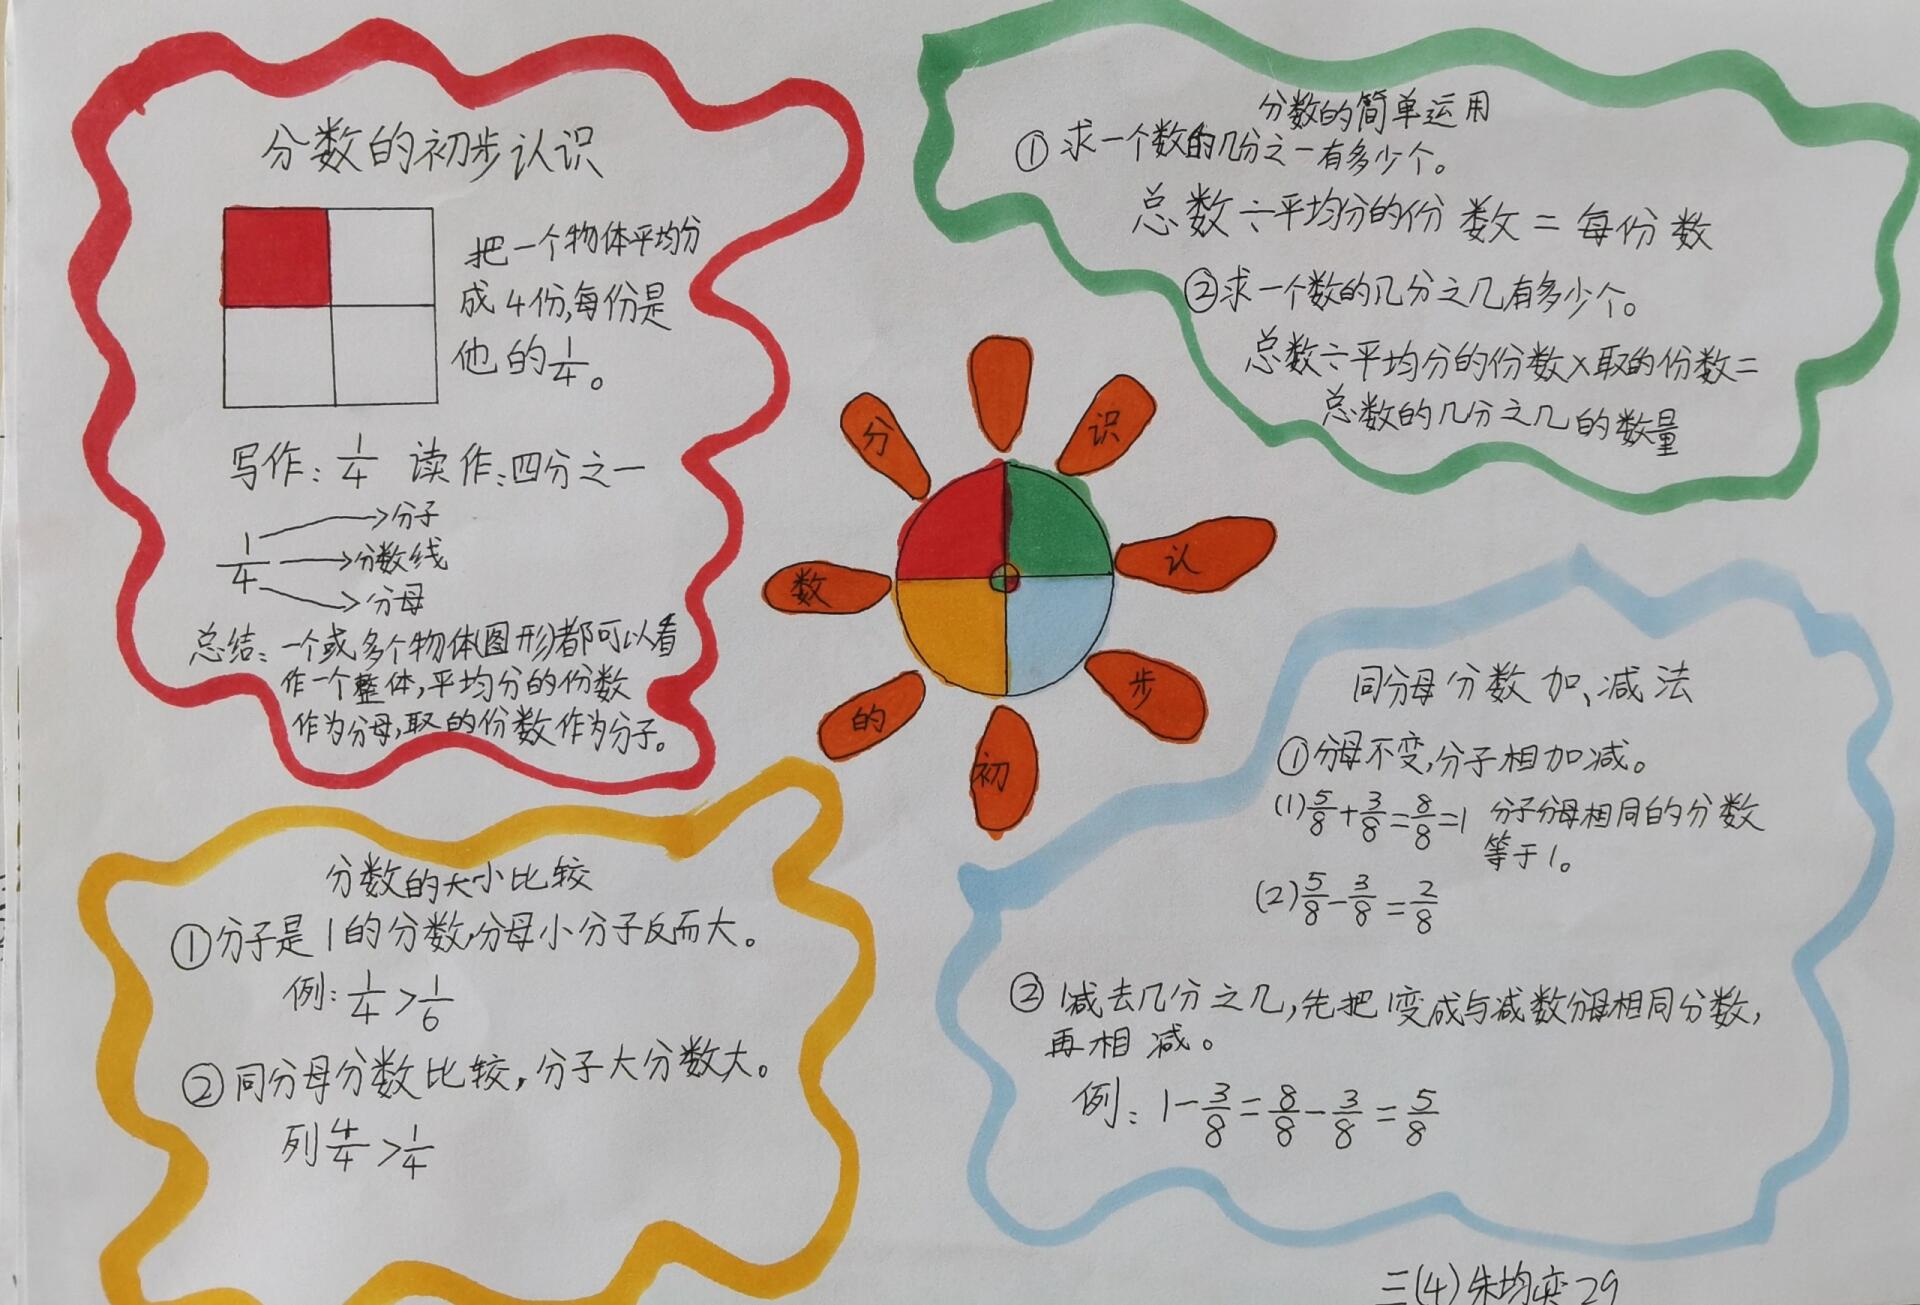 分数的初步认识
把一个物体平均分
成4份,每份是
他的1/4。
写作:1/4 读作:四分之一
1/4
分子
分数线
分母
总结:一个或多个物体(图形)都可以看
作一个整体,平均分的份数
作为分母,取的份数作为分子。
分数的简单运用
①求一个数的几分之一有多少个。
总数÷平均分的份数=每份数
②求一个数的几分之几有多少个。
总数÷平均分的份数×取的份数=
总数的几分之几的数量
分
数
的
初
步
认
识
分数的大小比较
①分子是1的分数,分母小分子反而大。
例:1/4>1/6
②同分母分数比较,分子大分数大。
列4/4>1/4
同分母分数加、减法
①分母不变,分子相加减。
(1)5/8+3/8=8/8=1 分子分母相同的分数
等于1。
(2)5/8-3/8=2/8
②1减去几分之几,先把1变成与减数分母相同分数,
再相减。
例:1-3/8=8/8-3/8=5/8
三(4)朱均奕29